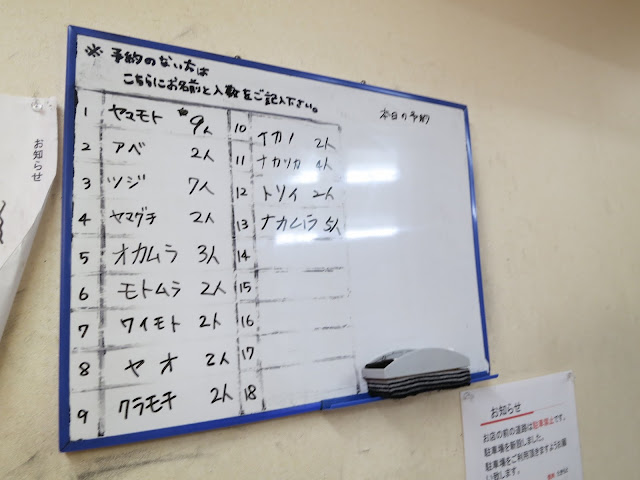 ※ 予約のない方は
こちらにお名前と人数をご記入下さい。
本日の予約
1 ヤマモト 9人
2 アベ 2人
3 ツジ 7人
4 ヤマグチ 2人
5 オカムラ 3人
6 モトムラ 2人
7 ワイモト 2人
8 ヤオ 2人
9 クラモチ 2人
10 イカノ 2人
11 ナカツカ 4人
12 トリイ 2人
13 ナカムラ 5人
14
15
16
17
18
お知らせ
お知らせ
お店の前の道路は駐車禁止です。
駐車場を新設しました。
駐車場をご利用頂きますようお願
い致します。